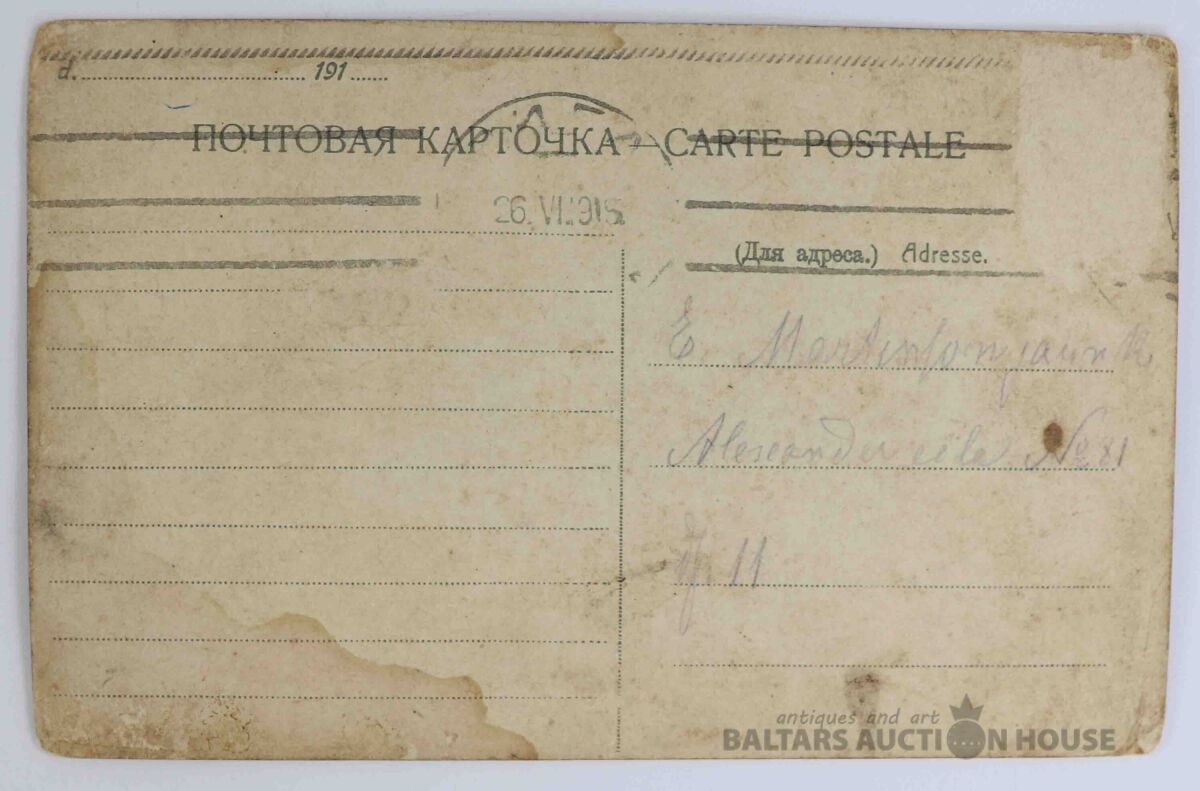 d. 191
ПОЧТОВАЯ КАРТОЧКА — CARTE POSTALE
26.VI.1915
(Для адреса.) Adresse.
E. Martinson jaunk
Alexander iela № 81
dz. 11
antiques and art
BALTARS AUCTION HOUSE